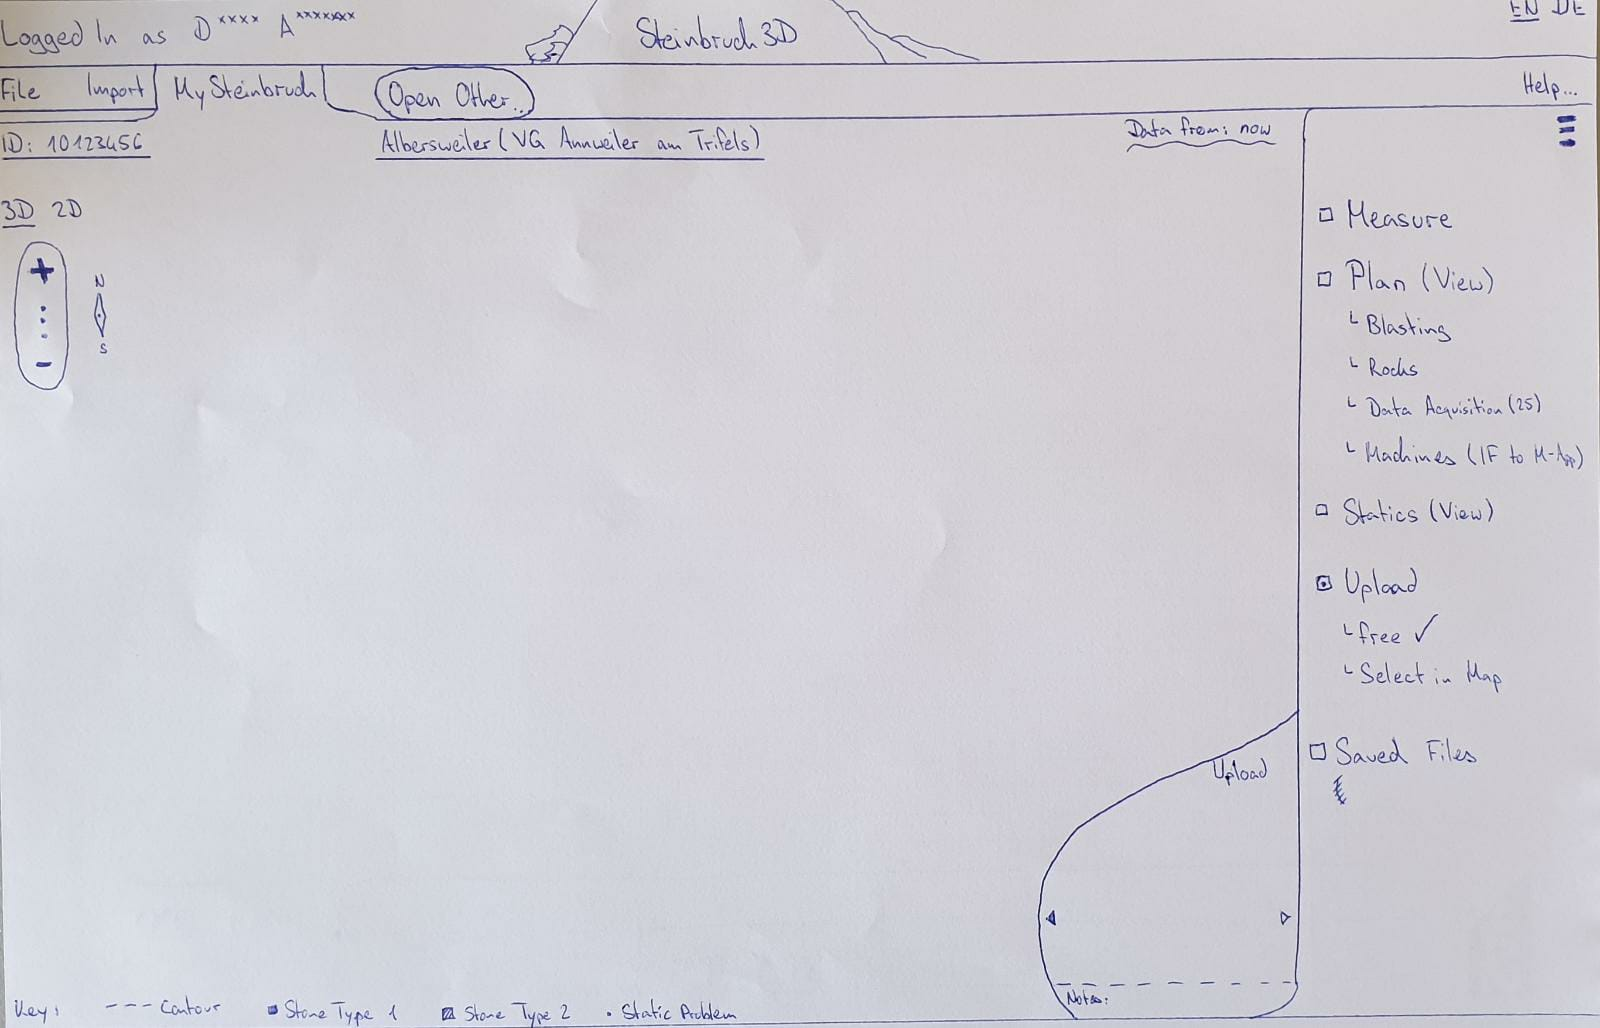 Logged In as D**** A*******
Steinbruch 3D
EN DE
File Import My Steinbruch Open Other... Help...
ID: 10123456
Albersweiler (VG Annweiler am Trifels)
Data from: now
3D 2D
+
-
N
S
Measure
Plan (View)
Blasting
Rocks
Data Acquisition (25)
Machines (IF to M-App)
Statics (View)
Upload
free ✓
Select in Map
Saved Files
Upload
Notes:
Key: --- Contour Stone Type 1 Stone Type 2 Static Problem